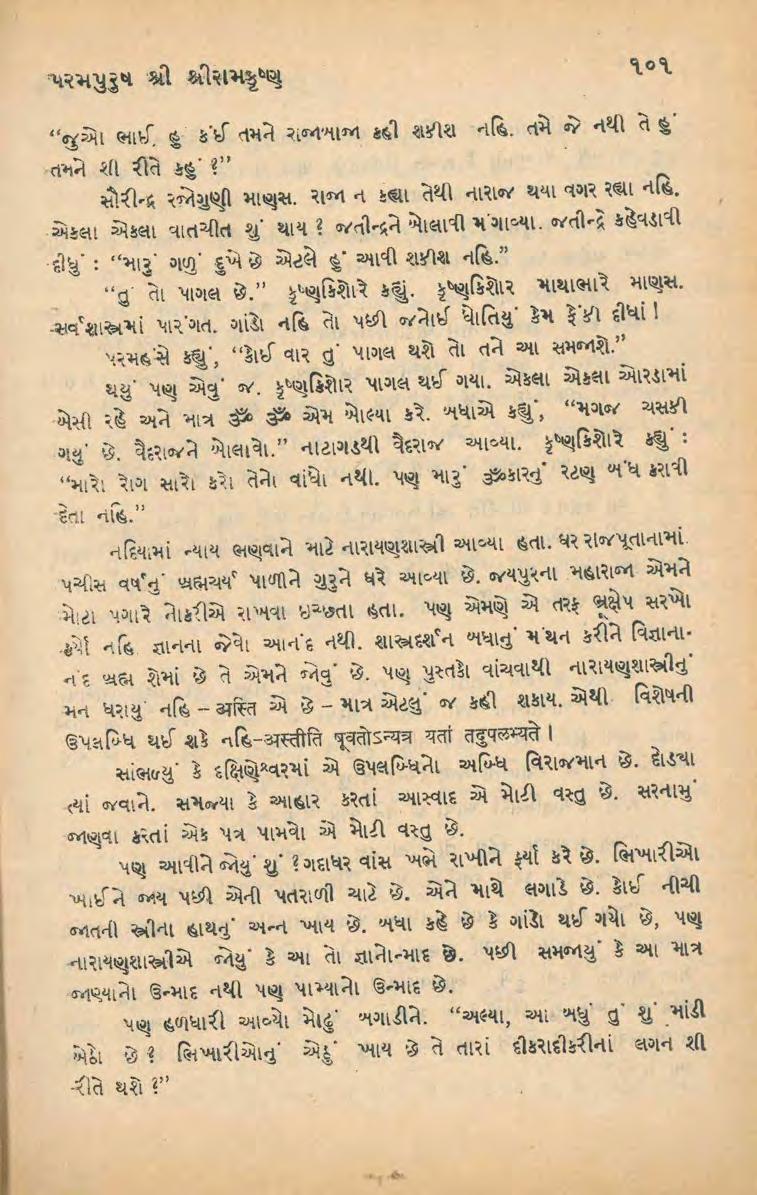 પરમપુરુષ શ્રી શ્રીરામકૃષ્ણ
૧૦૧
“જુઓ ભાઈ, હું કંઈ તમને રાજાબાજા કહી શકીશ નહિ. તમે જે નથી તે હું
તમને શી રીતે કહું ?”
સૌરીન્દ્ર રજોગુણી માણસ. રાજા ન કહ્યા તેથી નારાજ થયા વગર રહ્યા નહિ.
એકલા એકલા વાતચીત શું થાય ? જતીન્દ્રને બોલાવી મંગાવ્યા. જતીન્દ્રે કહેવડાવી
દીધું : “મારું ગળું દુખે છે એટલે હું આવી શકીશ નહિ.”
“તું તો પાગલ છે.” કૃષ્ણકિશોરે કહ્યું. કૃષ્ણકિશોર માથાભારે માણસ.
સર્વશાસ્ત્રમાં પારંગત. ગાંડો નહિ તો પછી જનોઈ ધોતિયું કેમ ફેંકી દીધાં !
પરમહંસે કહ્યું, “કોઈ વાર તું પાગલ થશે તો તને આ સમજાશે.”
થયું પણ એવું જ. કૃષ્ણકિશોર પાગલ થઈ ગયા. એકલા એકલા ઓરડામાં
બેસી રહે અને માત્ર ૐ ૐ એમ બોલ્યા કરે. બધાએ કહ્યું, “મગજ ચસકી
ગયું છે. વૈદરાજને બોલાવો.” નાટાગડથી વૈદરાજ આવ્યા. કૃષ્ણકિશોરે કહ્યું :
“મારો રોગ સારો કરો તેનો વાંધો નથી. પણ મારું ૐકારનું રટણ બંધ કરાવી
દેતા નહિ.”
નદિયામાં ન્યાય ભણવાને માટે નારાયણશાસ્ત્રી આવ્યા હતા. ઘર રાજપૂતાનામાં.
પચીસ વર્ષનું બ્રહ્મચર્ય પાળીને ગુરુને ઘરે આવ્યા છે. જયપુરના મહારાજા એમને
મોટા પગારે નોકરીએ રાખવા ઇચ્છતા હતા. પણ એમણે એ તરફ ભ્રૂક્ષેપ સરખો
કર્યો નહિ. જ્ઞાનના જેવો આનંદ નથી. શાસ્ત્રદર્શન બધાનું મંથન કરીને વિજ્ઞાના-
નંદ બ્રહ્મ શેમાં છે તે એમને જોવું છે. પણ પુસ્તકો વાંચવાથી નારાયણશાસ્ત્રીનું
મન ધરાયું નહિ – अस्ति એ છે – માત્ર એટલું જ કહી શકાય. એથી વિશેષની
ઉપલબ્ધિ થઈ શકે નહિ-अस्तीति ब्रूवतोऽन्यत्र यतां तदुपलभ्यते ।
સાંભળ્યું કે દક્ષિણેશ્વરમાં એ ઉપલબ્ધિનો અબ્ધિ વિરાજમાન છે. દોડ્યા
ત્યાં જવાને. સમજ્યા કે આહાર કરતાં આસ્વાદ એ મોટી વસ્તુ છે. સરનામું
જાણવા કરતાં એક પત્ર પામવો એ મોટી વસ્તુ છે.
પણ આવીને જોયું શું ? ગદાધર વાંસ ખભે રાખીને ફર્યા કરે છે. ભિખારીઓ
ખાઈને જાય પછી એની પતરાળી ચાટે છે. એને માથે લગાડે છે. કોઈ નીચી
જાતની સ્ત્રીના હાથનું અન્ન ખાય છે. બધા કહે છે કે ગાંડો થઈ ગયો છે, પણ
નારાયણશાસ્ત્રીએ જોયું કે આ તો જ્ઞાનોન્માદ છે. પછી સમજાયું કે આ માત્ર
જાણ્યાનો ઉન્માદ નથી પણ પામ્યાનો ઉન્માદ છે.
પણ હળધારી આવ્યો મોઢું બગાડીને. “અલ્યા, આ બધું તું શું માંડી
બેઠો છે ? ભિખારીઓનું એઠું ખાય છે તે તારાં દીકરાદીકરીનાં લગન શી
રીતે થશે ?”